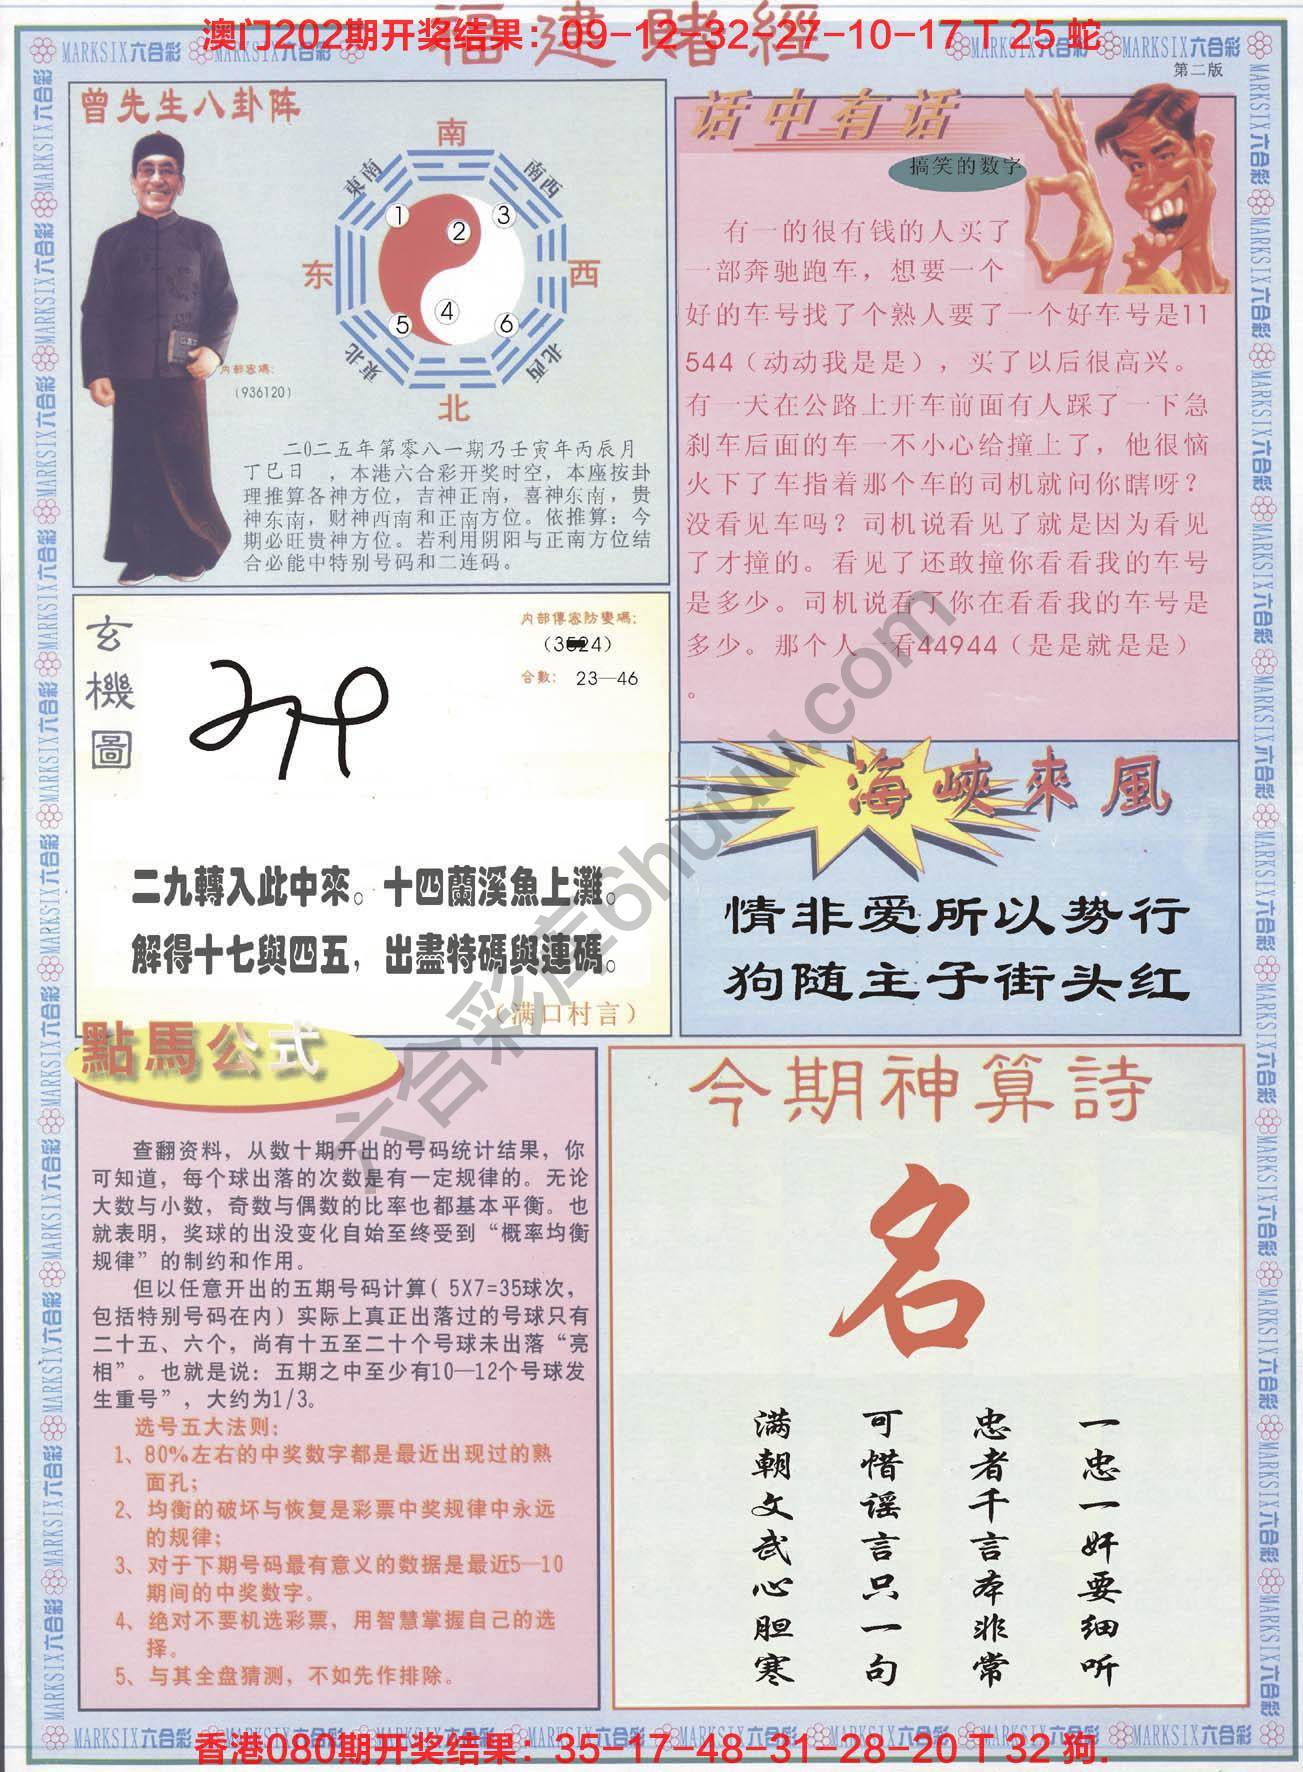 福建赌經
澳门202期开奖结果：09-12-32-27-10-17 T 25 蛇
MARKSIX六合彩
第二版
曾先生八卦阵
南
東南
南西
1
2
3
东
西
4
5
6
東北
北西
北
内部密碼：
（936120）
二0二五年第零八一期乃壬寅年丙辰月
丁巳日 ，本港六合彩开奖时空，本座按卦
理推算各神方位，吉神正南，喜神东南，贵
神东南，财神西南和正南方位。依推算：今
期必旺贵神方位。若利用阴阳与正南方位结
合必能中特别号码和二连码。
话中有话
搞笑的数字
有一的很有钱的人买了
一部奔驰跑车，想要一个
好的车号找了个熟人要了一个好车号是11
544（动动我是是），买了以后很高兴。
有一天在公路上开车前面有人踩了一下急
刹车后面的车一不小心给撞上了，他很恼
火下了车指着那个车的司机就问你瞎呀？
没看见车吗？司机说看见了就是因为看见
了才撞的。看见了还敢撞你看看我的车号
是多少。司机说看了你在看看我的车号是
多少。那个人一看44944（是是就是是）
。
玄機圖
内部傳密防變碼：
合數： 23—46
二九轉入此中來。十四蘭溪魚上灘。
解得十七與四五，出盡特碼與連碼。
（满口村言）
海峽來風
情非爱所以势行
狗随主子街头红
點馬公式
查翻资料，从数十期开出的号码统计结果，你
可知道，每个球出落的次数是有一定规律的。无论
大数与小数，奇数与偶数的比率也都基本平衡。也
就表明，奖球的出没变化自始至终受到“概率均衡
规律”的制约和作用。
但以任意开出的五期号码计算( 5X7=35球次，
包括特别号码在内）实际上真正出落过的号球只有
二十五、六个，尚有十五至二十个号球未出落“亮
相”。也就是说：五期之中至少有10—12个号球发
生重号”，大约为1/3。
选号五大法则：
1、80%左右的中奖数字都是最近出现过的熟
面孔；
2、均衡的破坏与恢复是彩票中奖规律中永远
的规律；
3、对于下期号码最有意义的数据是最近5—10
期间的中奖数字。
4、绝对不要机选彩票，用智慧掌握自己的选
择。
5、与其全盘猜测，不如先作排除。
今期神算詩
名
一忠一奸要细听
忠者千言本非常
可惜谣言只一句
满朝文武心胆寒
六合彩库6huuu.com
MARKSIX六合彩
香港080期开奖结果：35-17-48-31-28-20 T 32 狗.